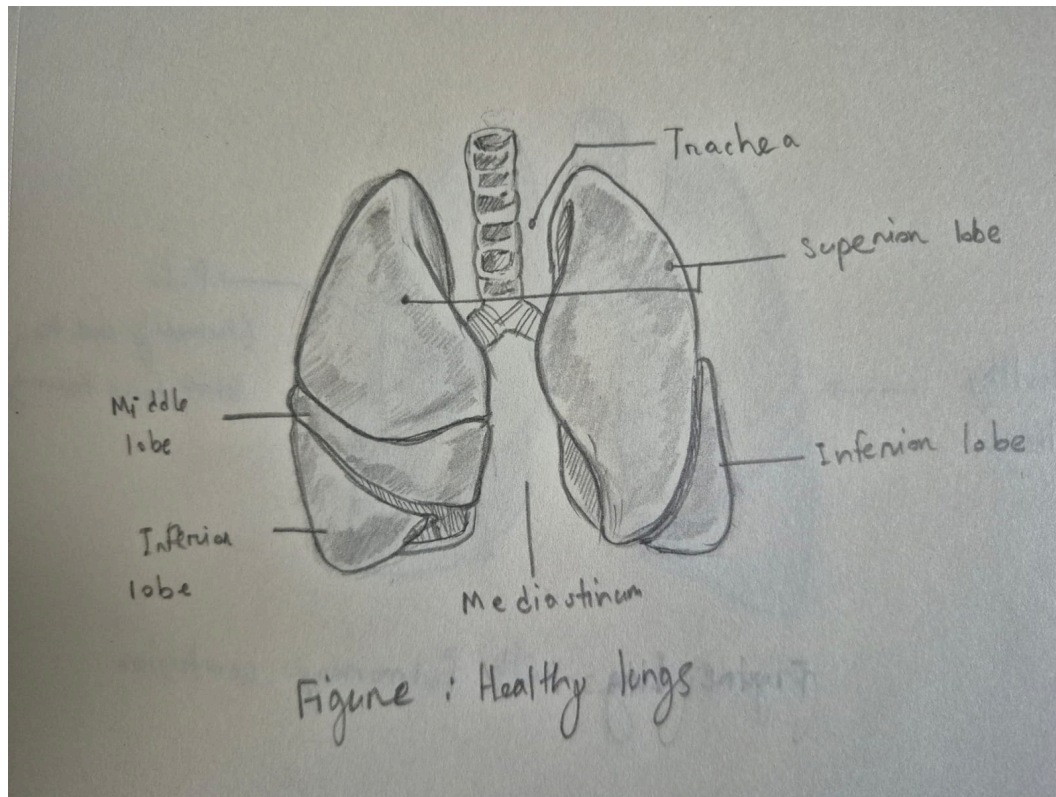 Trachea
Superior lobe
Middle
lobe
Inferior lobe
Inferior
lobe
Mediastinum
Figure : Healthy lungs